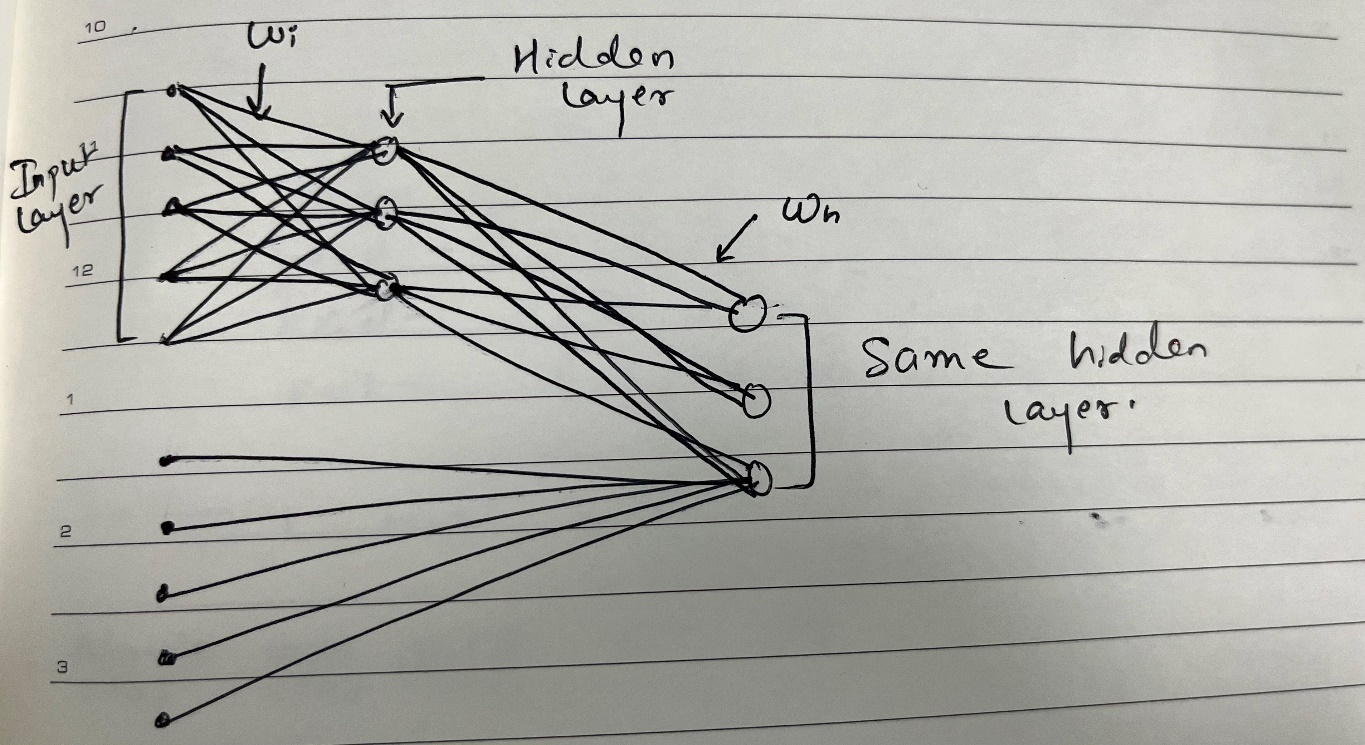 10
Wi
Hidden
Layer
11
Input
Layer
Wh
12
Same hidden
Layer.
1
2
3